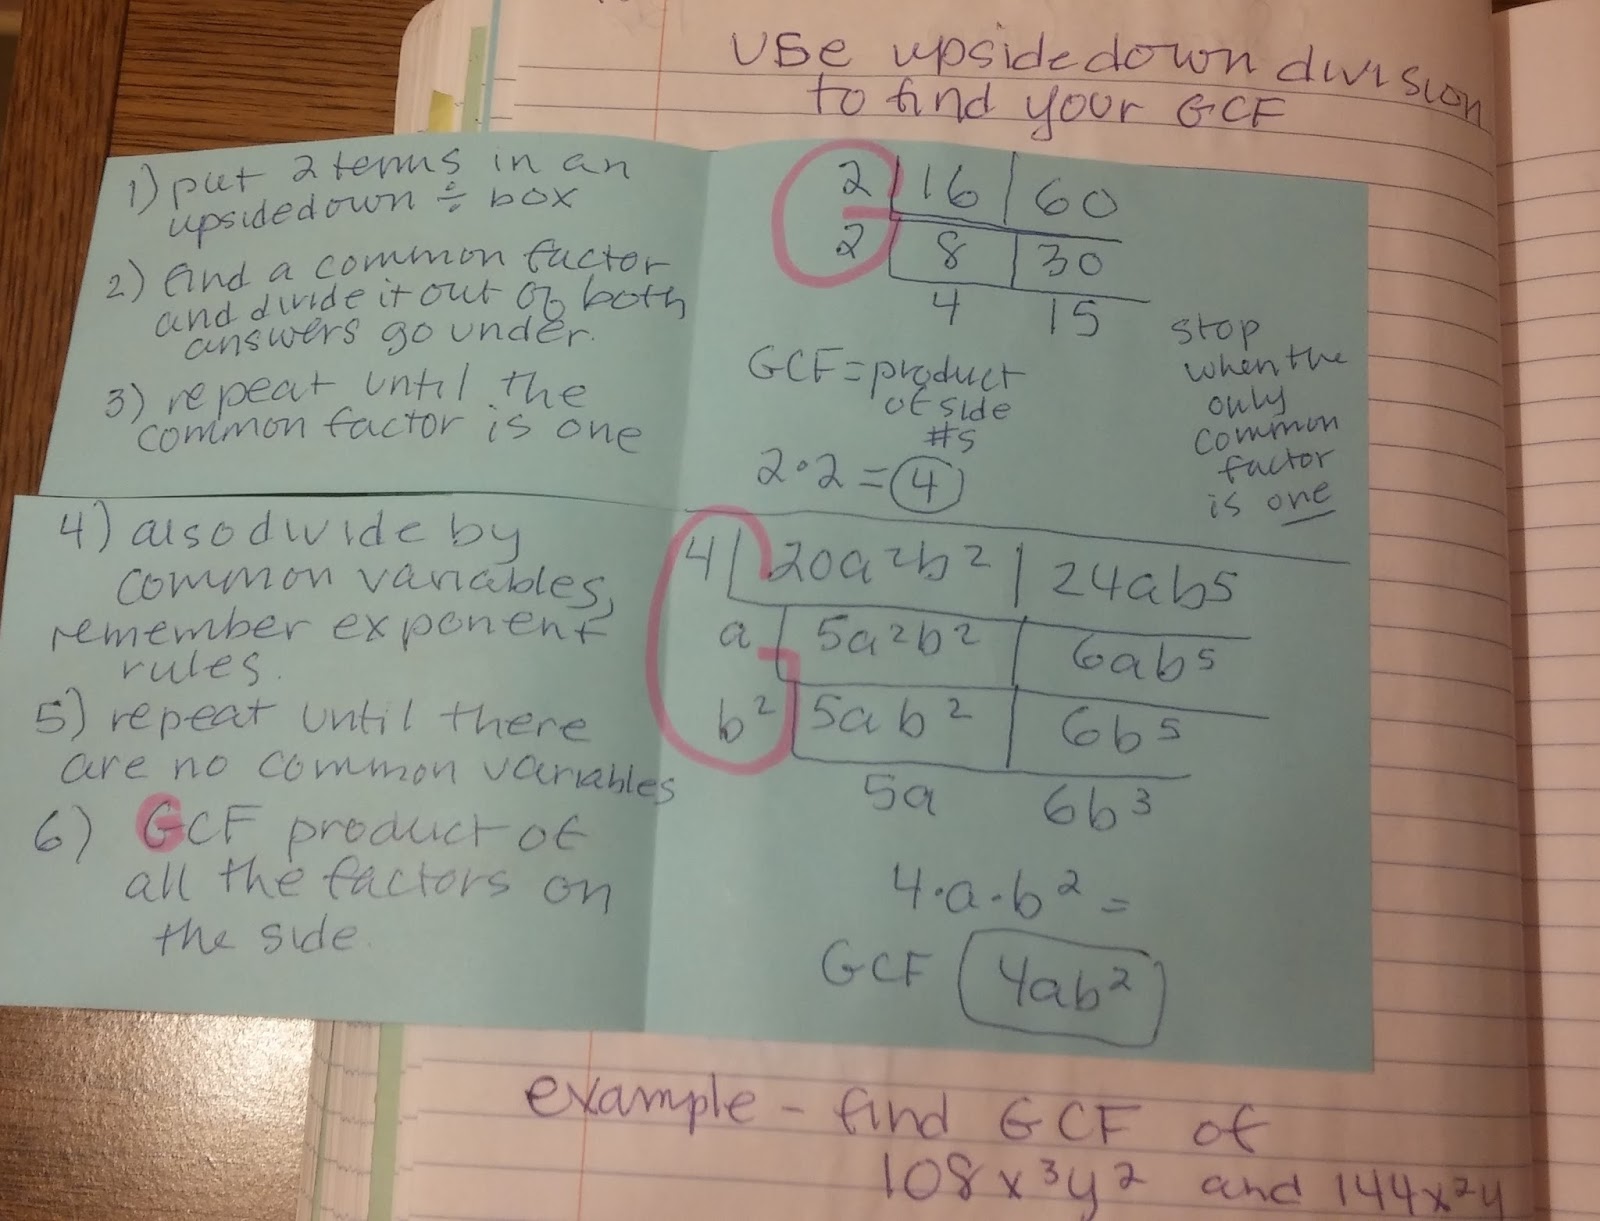 use upsidedown division
to find your GCF
1) put 2 terms in an
upsidedown ÷ box
2) find a common factor
and divide it out of both
answers go under.
3) repeat until the
common factor is one
2 | 16 | 60
2 | 8 | 30
4 15
GCF = product
of side
#s
2 • 2 = 4
stop
when the
only
common
factor
is one
4) also divide by
common variables,
remember exponent
rules.
5) repeat until there
are no common variables
6) GCF product of
all the factors on
the side.
4 | 20a²b² | 24ab⁵
a | 5a²b² | 6ab⁵
b² | 5ab² | 6b⁵
5a 6b³
4·a·b² =
GCF 4ab²
example - find GCF of
108x³y² and 144x²y